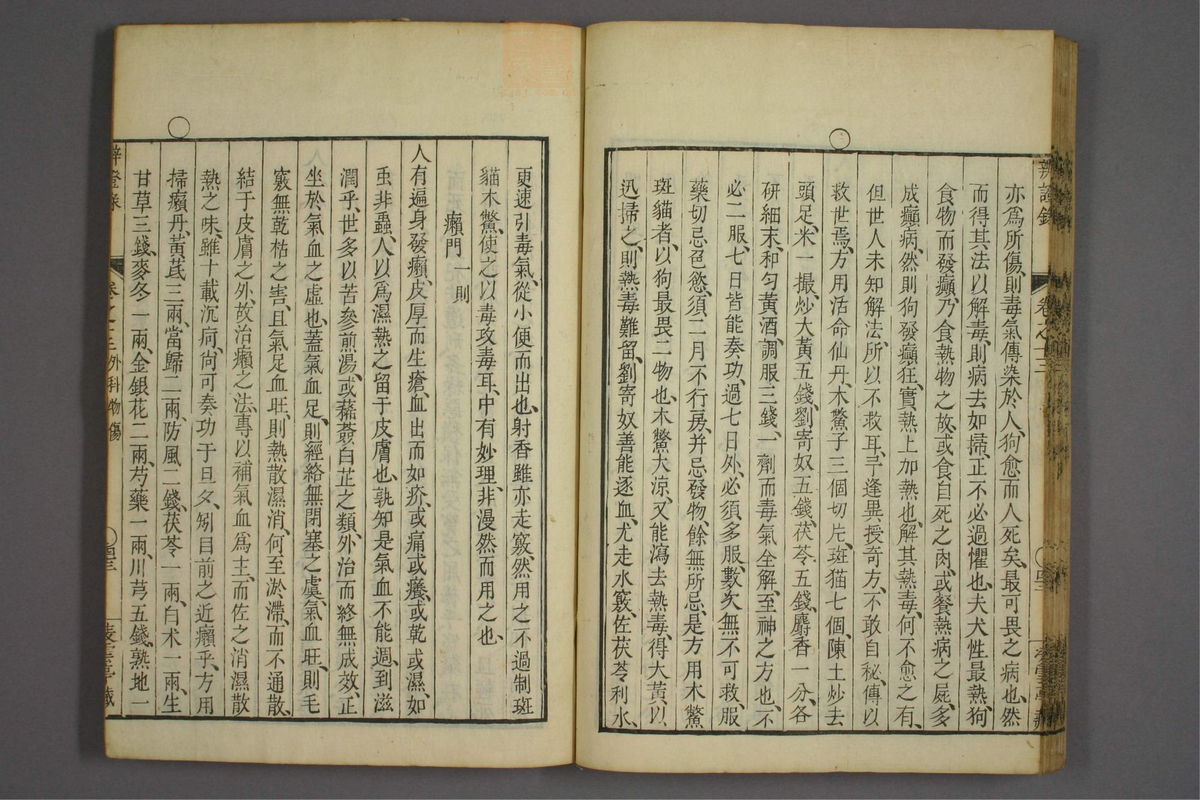 辨證錄 卷之十三
亦爲所傷、則毒氣傳染於人、狗愈而人死矣、最可畏之病也、然
而得其法以解毒、則病去如掃、正不必過懼也、夫犬性最熱、狗
食物而發癲、乃食熱物之故、或食自死之肉、或餐熱病之屍、多
成癲病、然則狗發癲狂、實熱上加熱也、解其熱毒、何不愈之有、
但世人未知解法、所以不救耳、予逢異授奇方、不敢自秘、傳以
救世焉、方用活命仙丹、木鱉子三個切片、斑猫七個陳土炒去
頭足、米一撮炒大黃五錢劉寄奴五錢茯苓五錢麝香一分、各
研細末、和勻黃酒、調服三錢、一劑而毒氣全解、至神之方也、不
必二服、七日皆能奏功、過七日外、必須多服、數次無不可救、服
藥切忌色慾、須二月不行房、并忌發物、餘無所忌、是方用木鱉
斑貓者、以狗最畏二物也、木鱉大涼、又能瀉去熱毒、得大黃、以
迅掃之、則熱毒難留、劉寄奴善能逐血、尤走水竅、佐茯苓利水、
更速引毒氣、從小便而出也、射香雖亦走竅、然用之不過制斑
貓木鱉、使之以毒攻毒耳、中有妙理、非漫然而用之也、
癩門一則
人有遍身發癩、皮厚而生瘡、血出而如疥、或痛或癢、或乾或濕、如
虫非蟲、人以爲濕熱之留于皮膚也、孰知是氣血不能週到滋
潤乎、世多以苦參煎湯、或豨薟白芷之類、外治而終無成效、正
坐於氣血之虛也、蓋氣血足、則經絡無閉塞之虞、氣血旺、則毛
竅無乾枯之害、且氣足血旺、則熱散濕消、何至淤滯、而不通散、
結于皮膚之外、故治癩之法、專以補氣血爲主、而佐之消濕散
熱之味、雖十載沉疴、尚可奏功于旦夕、矧目前之近癩乎、方用
掃癩丹、黃芪三兩、當歸二兩、防風二錢、茯苓一兩、白术一兩、生
甘草三錢、麥冬一兩、金銀花二兩、芍藥一兩、川芎五錢、熟地一
辨證錄 卷之十三 外科物傷